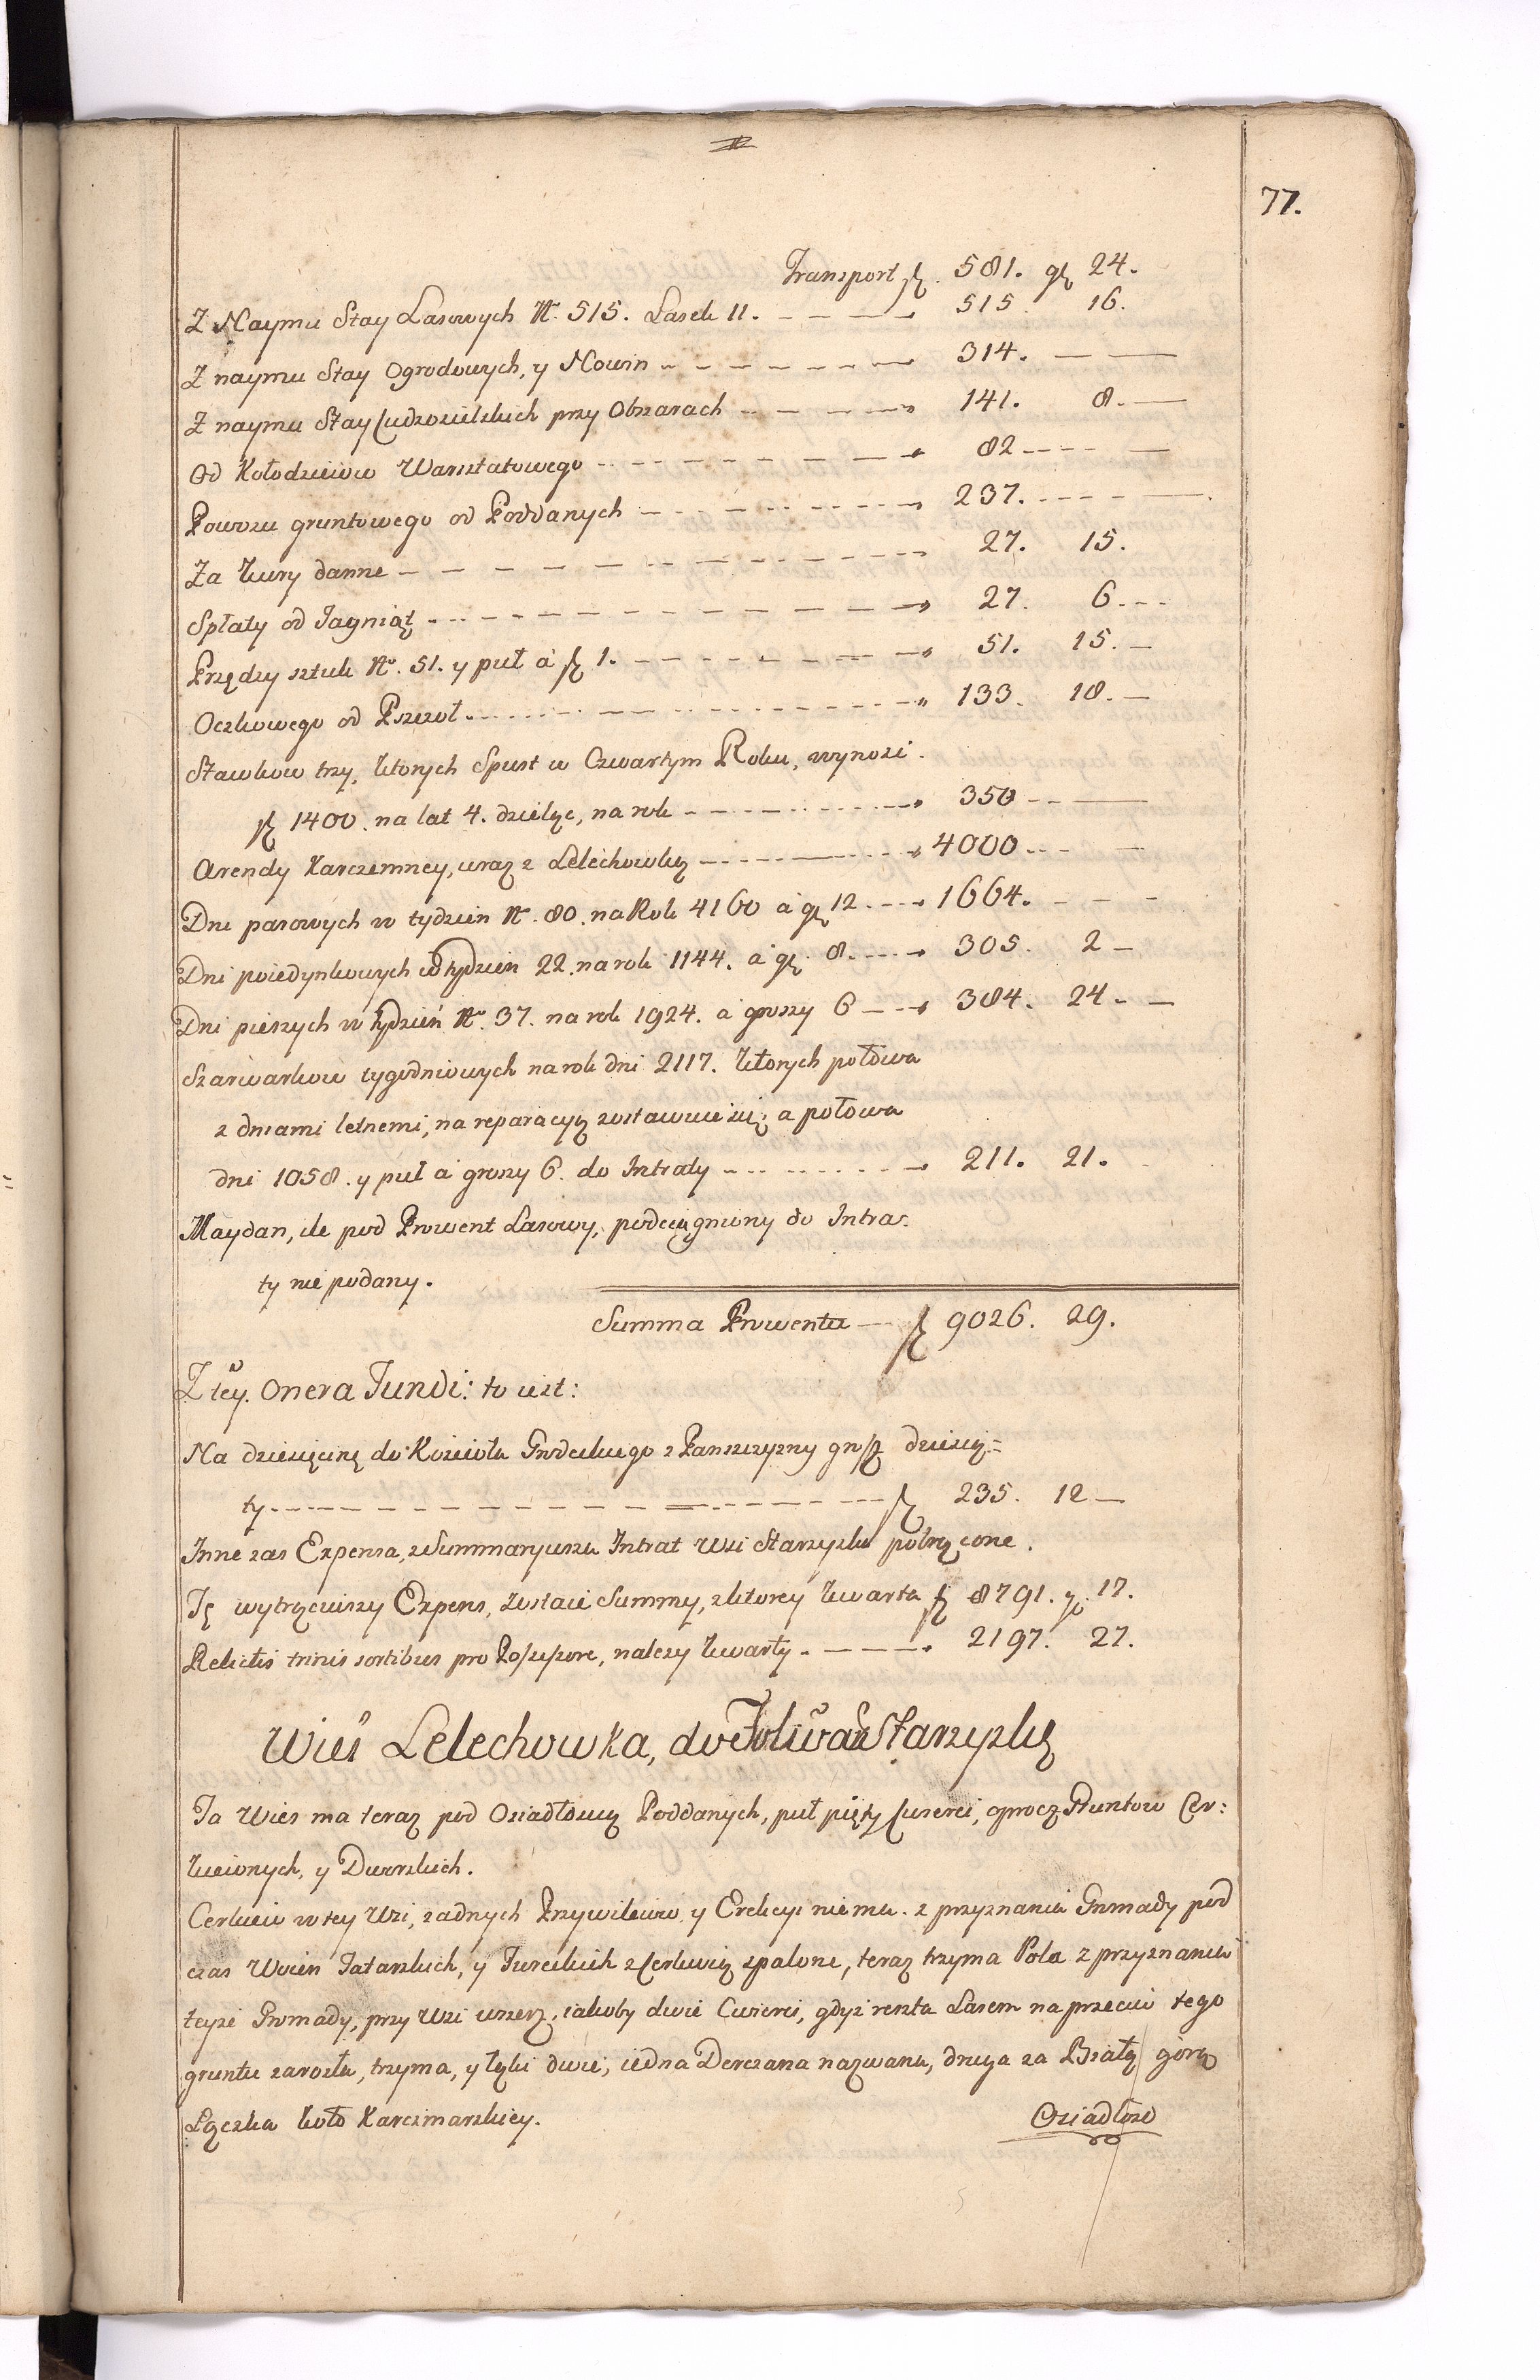 77.
Transport zł. 581. gr 24.
Z Naymu Stay Lasowych N. 515. Lasek 11. 515. 16.
Z naymu Stay Ogrodowych, y Nowin 314.
Z naymu Stay Cudzosielskich przy Obszarach 141. 8.
Od Kołodzieiow Warsztatowego 82
Powozu gruntowego od Poddanych 237.
Za kury danne 27. 15.
Spłaty od Iagniąt 27. 6.
Przędzy sztuk No. 51. y puł à zł 1. 51. 15.
Oczkowego od Pszczoł 133. 18.
Stawkow trzy, ktorych Spust w Czwartym Roku, wynosi
zł 1400. na lat 4. dzieląc, na rok 350
Arendy Karczemney, wraz z Lelechowką 4000
Dni parowych w tydzien N. 80. na Rok 4160 à gr 12. 1664.
Dni poiedynkowych w tydzien 22. na rok 1144. à gr. 8. 305. 2
Dni pieszych w tydzień No. 37. na rok 1924. à groszy 6 384. 24.
Szarwarkow tygodniowych na rok dni 2117. ktorych połowa
z dniami letnemi, na reparacyą zostawuie się, a połowa
dni 1058. y puł à groszy 6. do Intraty 211. 21.
Maydan, ile pod Prowent Lasowy, podciągniony do Intra:
ty nie podany.
Summa Prowentu zł 9026. 29.
Z tey. Onera Fundi: to iest:
Na dziesięcinę do Kościoła Grodeckiego z Panszczyzny grosz dziesią=
ty zł 235. 12
Inne zas Expensa, z Summaryusza Intrat Wsi Starzysk potrącone.
Tę wytrąciwszy Expens, zostaie Summy, z ktorey kwarta zł 8791. gr. 17.
Relictis trinis sortibus pro Possessore, nalezy kwarty 2197. 27.
Wieś Lelechowka, do Folwar: Starzyską
Ta Wies ma teraz pod Osiadłoscią Poddanych, puł pięty Cwierci, oprocz Gruntow Cer:
kwionych, y Dworskich.
Cerkiew w tey Wsi, zadnych Przywileiow y Erekcyi niema. z przyznania Gromady pod
czas Woien Tatarskich, y Tureckich z Cerkwią spalone, teraz trzyma Pola z przyznania
teyże Gromady, przy Wsi wszerz, iakoby dwie Cwierci, gdyż reszta Lasem na przeciw tego
gruntu zarosła, trzyma, y łąki dwie, iedna Derczana nazwana, druga za Białą górą
Łączka koło Karczmarskiey.
Osiadłosc